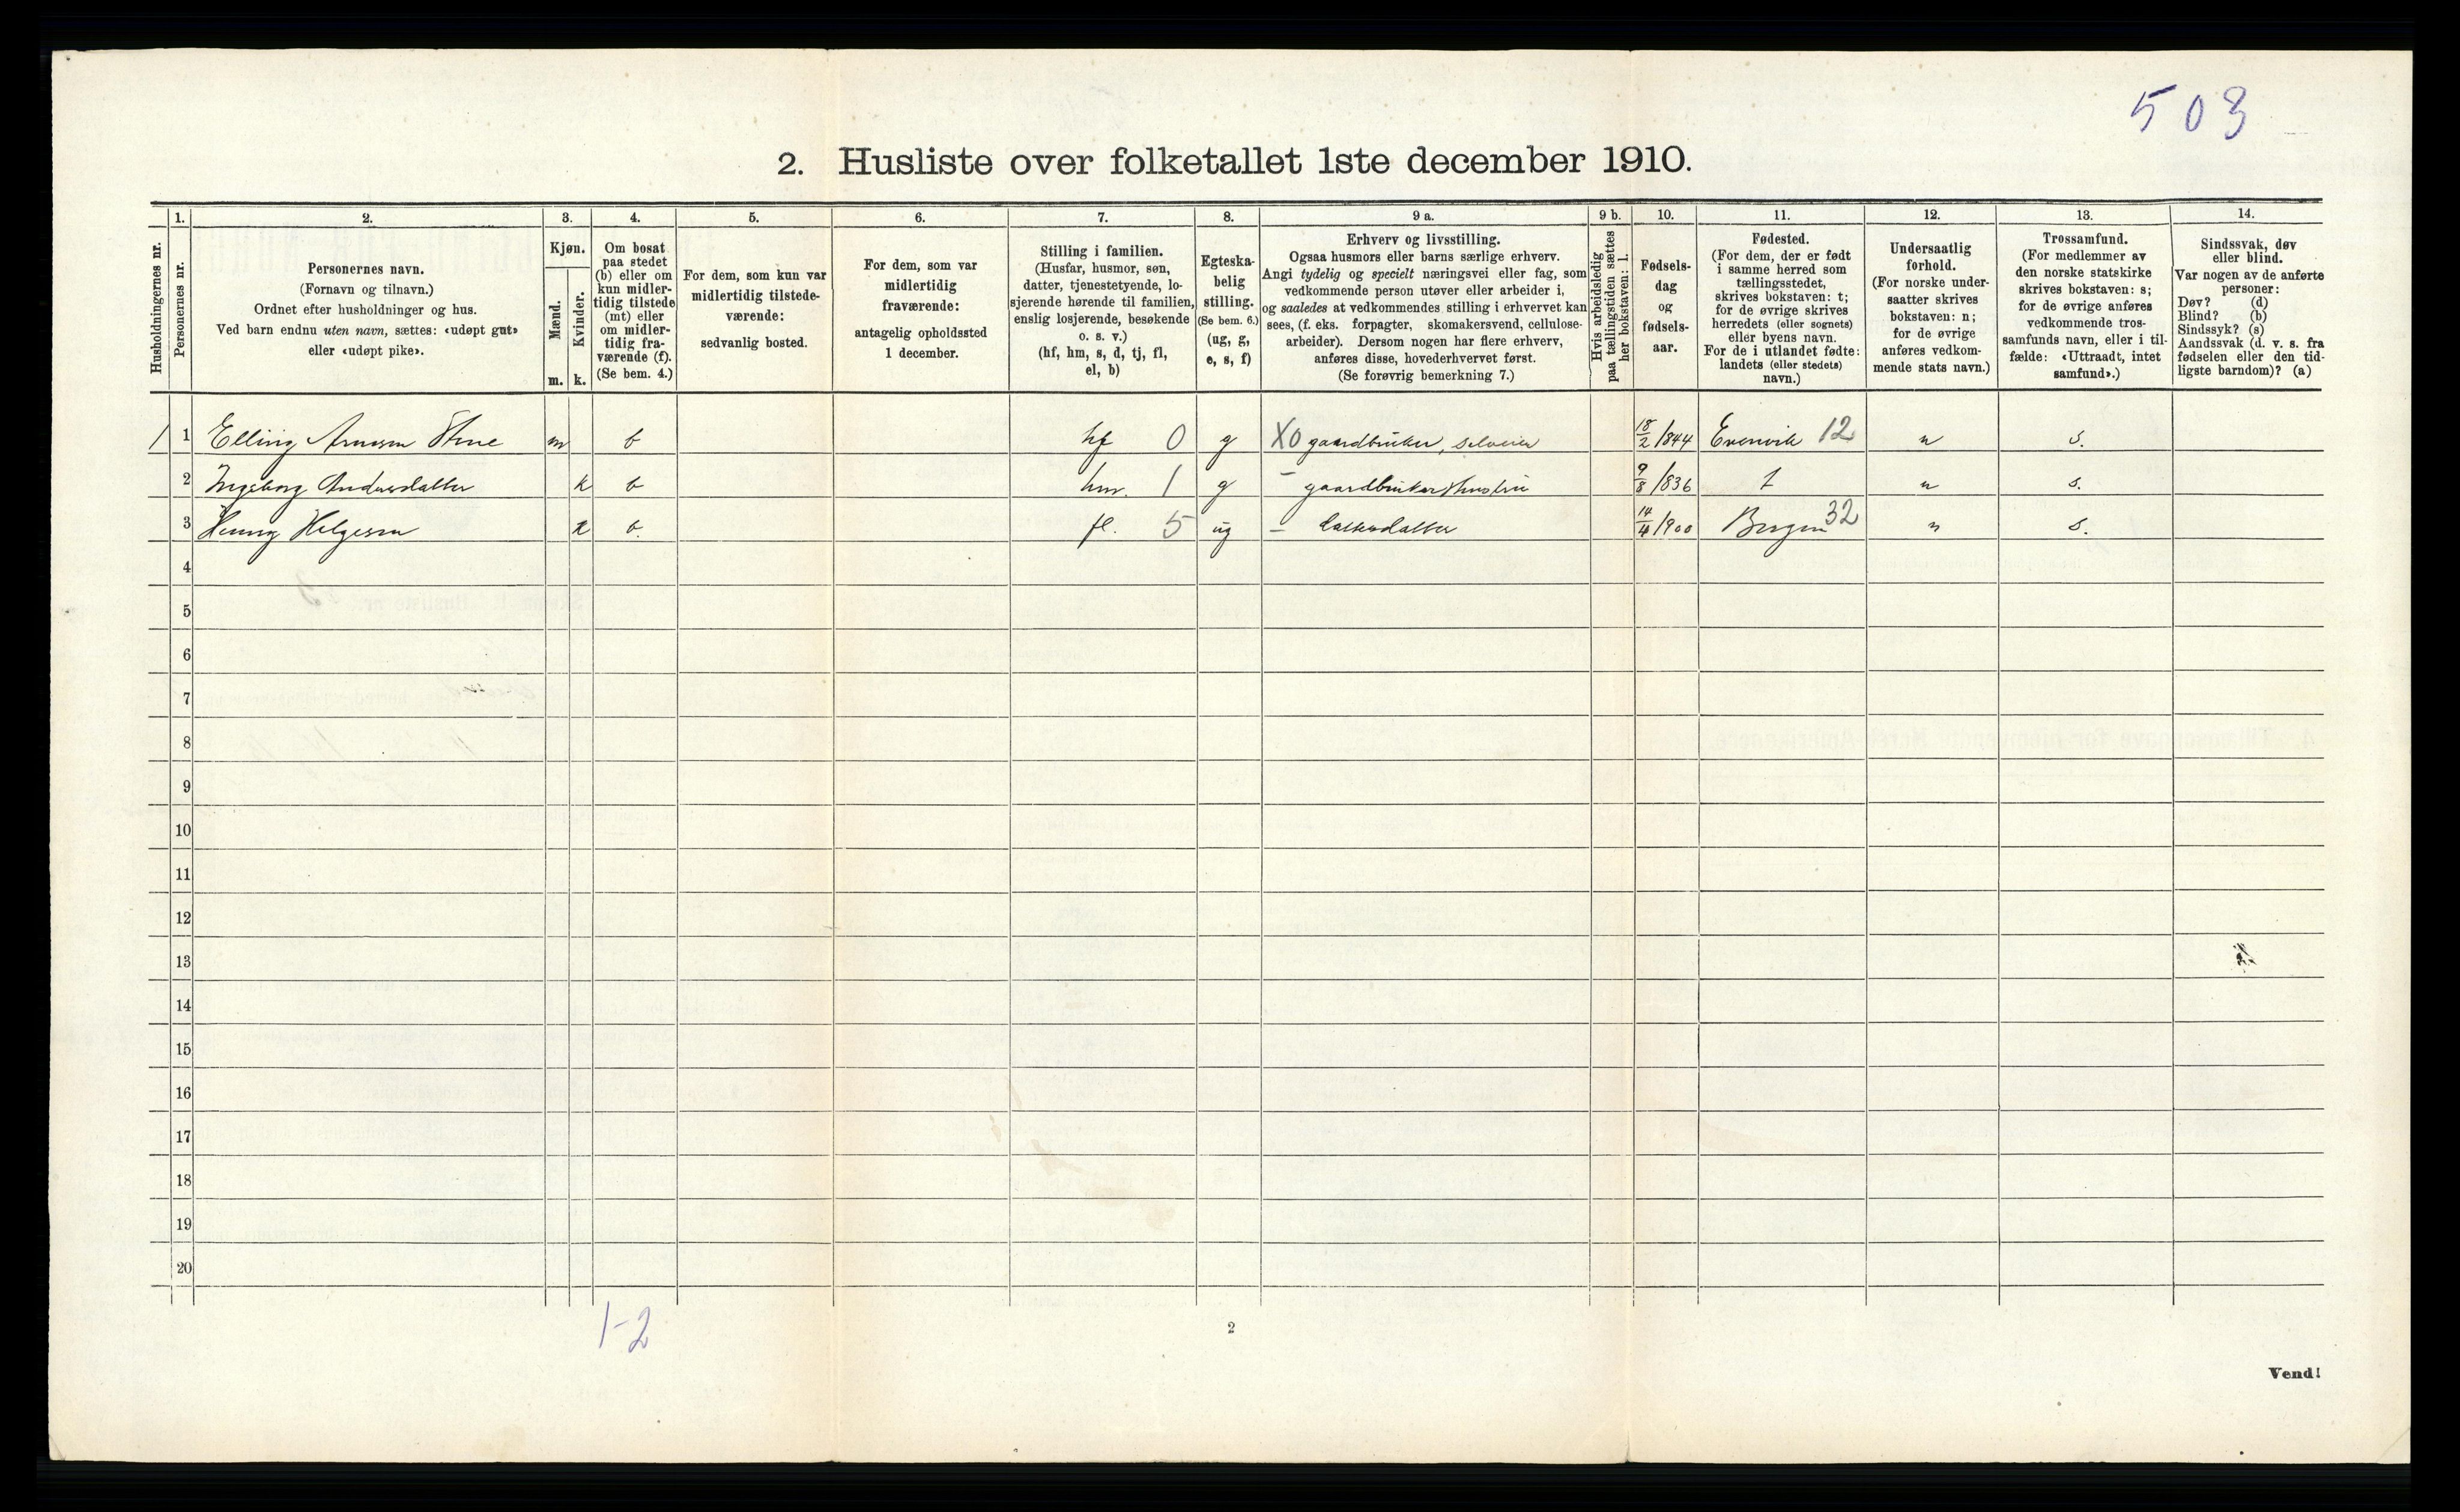 503
2. Husliste over folketallet 1ste december 1910.
Husholdningernes nr.
1.
Personernes nr.
2.
Personernes navn.
(Fornavn og tilnavn.)
Ordnet efter husholdninger og hus.
Ved barn endnu uten navn, sættes: «udøpt gut»
eller «udøpt pike».
3.
Kjøn.
Mænd.
m.
Kvinder.
k.
4.
Om bosat
paa stedet
(b) eller om
kun midler-
tidig tilstede
(mt) eller
om midler-
tidig fra-
værende (f).
(Se bem. 4.)
5.
For dem, som kun var
midlertidig tilstede-
værende:
sedvanlig bosted.
6.
For dem, som var
midlertidig
fraværende:
antagelig opholdssted
1 december.
7.
Stilling i familien.
(Husfar, husmor, søn,
datter, tjenestetyende, lo-
sjerende hørende til familien,
enslig losjerende, besøkende
o. s. v.)
(hf, hm, s, d, tj, fl,
el, b)
8.
Egteska-
belig
stilling.
(Se bem. 6.)
(ug, g,
e, s, f)
9 a.
Erhverv og livsstilling.
Ogsaa husmors eller barns særlige erhverv.
Angi tydelig og specielt næringsvei eller fag, som
vedkommende person utøver eller arbeider i,
og saaledes at vedkommendes stilling i erhvervet kan
sees, (f. eks. forpagter, skomakersvend, cellulose-
arbeider). Dersom nogen har flere erhverv,
anføres disse, hovederhvervet først.
(Se forøvrig bemerkning 7.)
9 b.
Hvis arbeidsledig
paa tællingstiden sættes
her bokstaven: l.
10.
Fødsels-
dag
og
fødsels-
aar.
11.
Fødested.
(For dem, der er født
i samme herred som
tællingsstedet,
skrives bokstaven: t;
for de øvrige skrives
herredets (eller sognets)
eller byens navn.
For de i utlandet fødte:
landets (eller stedets)
navn.)
12.
Undersaatlig
forhold.
(For norske under-
saatter skrives
bokstaven: n;
for de øvrige
anføres vedkom-
mende stats navn.)
13.
Trossamfund.
(For medlemmer av
den norske statskirke
skrives bokstaven: s;
for de øvrige anføres
vedkommende tros-
samfunds navn, eller i til-
fælde: «Uttraadt, intet
samfund».)
14.
Sindssvak, døv
eller blind.
Var nogen av de anførte
personer:
Døv? (d)
Blind? (b)
Sindssyk? (s)
Aandssvak (d. v. s. fra
fødselen eller den tid-
ligste barndom)? (a)
1 1 Elling Arnesen m b hf 0 g X0 gaardbruker, selveier 18/2/844 Evenvik 12 n s.
2 Ingeborg Andersdatter k b hm. 1 g – gaardbrukerhustru 9/8/836 t n s.
3 Helgesen k b. fl. 5 ug – 14/4/900 Bergen 32 n s.
4
5
6
7
8
9
10
11
12
13
14
15
16
17
18
19
20
1-2
2
Vend!